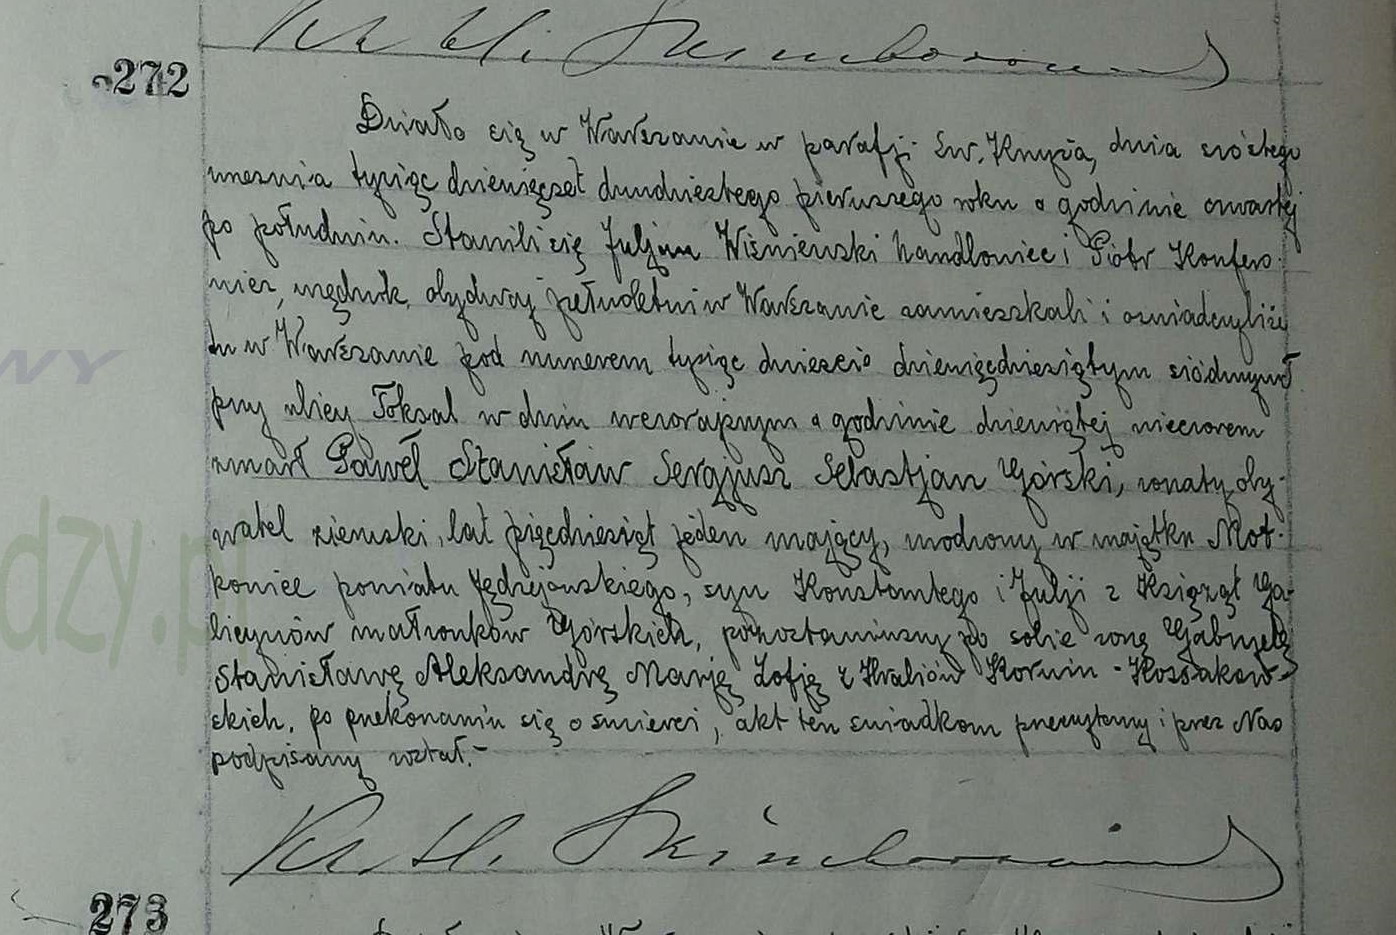 272
Działo się w Warszawie w parafji Św. Krzyża, dnia szóstego
września tysiąc dziewięćset dwudziestego pierwszego roku o godzinie czwartej
po południu. Stawili się Juljan Wiśniewski handlowiec i Piotr
urzędnik, obydwaj pełnoletni w Warszawie zamieszkali i oświadczyli że
tu w Warszawie pod numerem tysiąc dwieście dziewięćdziesiątym siódmym
przy ulicy Foksal w dniu wczorajszym o godzinie dziewiątej wieczorem
zmarł Paweł Stanisław Sergjusz Sebastjan Górski, żonaty, oby-
watel ziemski, lat pięćdziesiąt jeden mający, urodzony w majątku Mot-
kowice powiatu Jędrzejowskiego, syn Konstantego i Julji z Książąt Ga-
licynów małżonków Górskich, pozostawiwszy po sobie żonę Gabrjelę
Stanisławę Aleksandrę Marję Zofję z Hrabiów Korwin-Kossakow-
skich. po przekonaniu się o śmierci, akt ten świadkom przeczytany i przez Nas
podpisany został.-
273